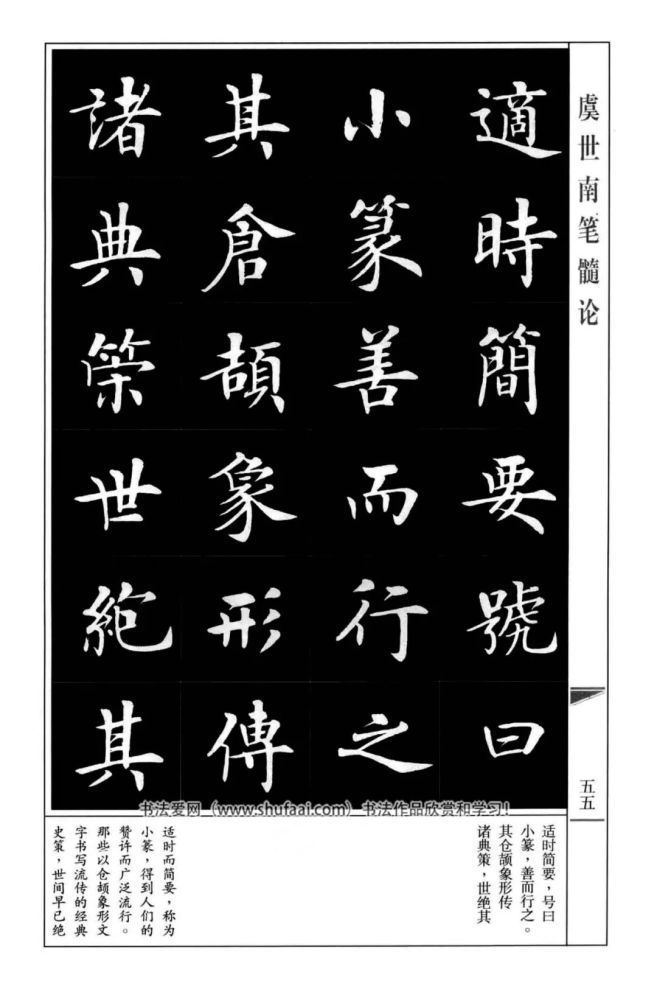 虞世南笔髓论
適時簡要號曰
小篆善而行之
其倉頡象形傳
諸典策世絶其
五五
适时简要，号曰
小篆，善而行之。
其仓颉象形传
诸典策，世绝其
适时而简要，称为
小篆，得到人们的
赞许而广泛流行。
那些以仓颉象形文
字书写流传的经典
史策，世间早已绝
书法爱网（www.shufaai.com）书法作品欣赏和学习！